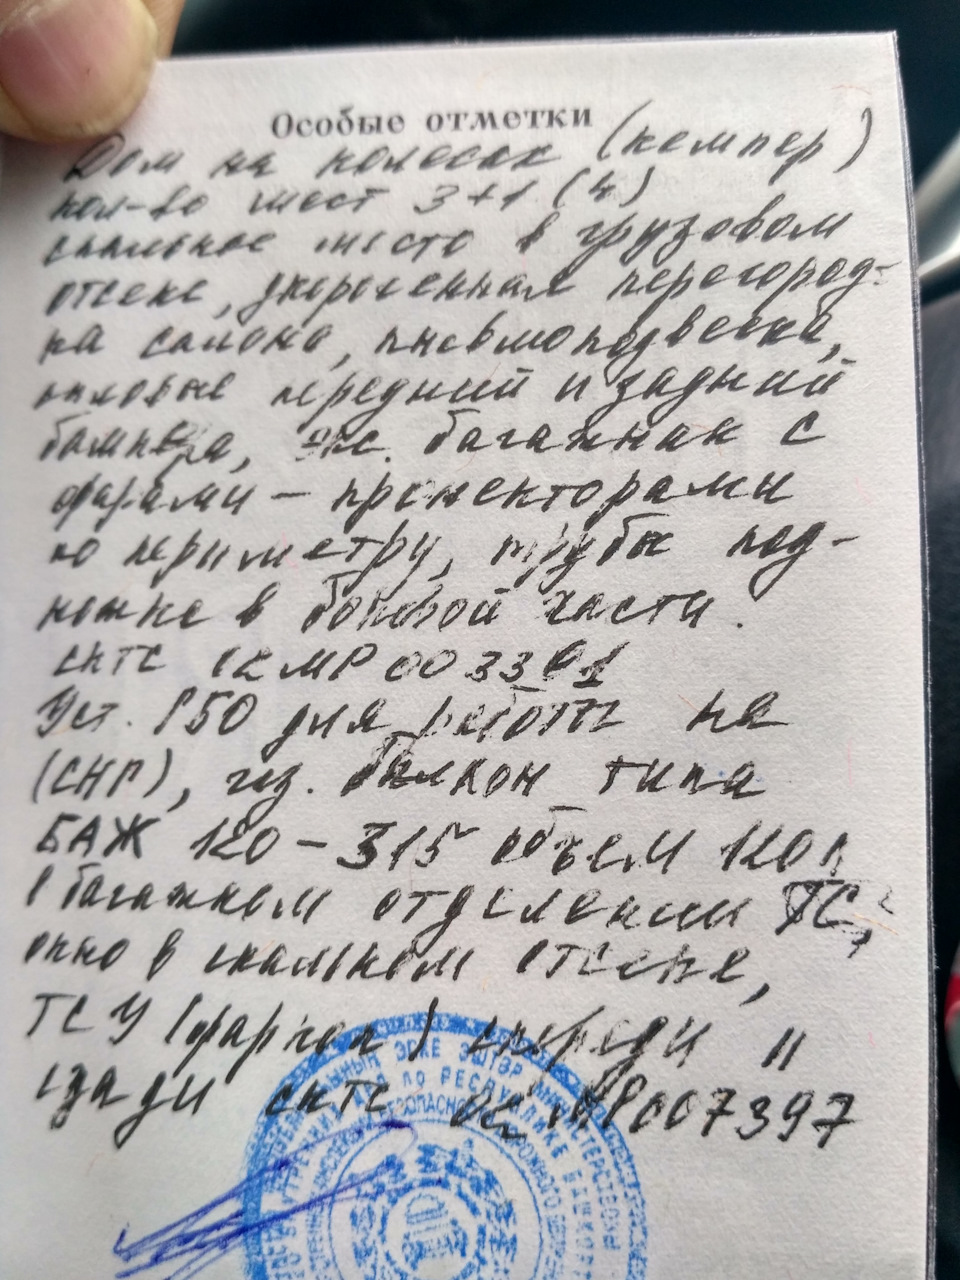 Особые отметки
Дом на колесах (кемпер)
кол-во мест 3+1 (4)
спальное место в грузовом
отсеке, укороченная перегород-
ка салона, пневмоподвеска,
силовые передний и задний
бампера, экс. багажник с
фарами - прожекторами
по периметру, трубы под-
ножке в боковой части.
СКТС 02 МР 003361
Уст. ГБО для работы на
(СНГ), газ. баллон типа
БАЖ 120-315 объем 120л
в багажном отделении ТС,
окно в спальном отсеке,
ТСУ (фаркоп) спереди и
сзади СКТС 02 МР007397
ПО РЕСПУБЛИКЕ БАШКОРТ